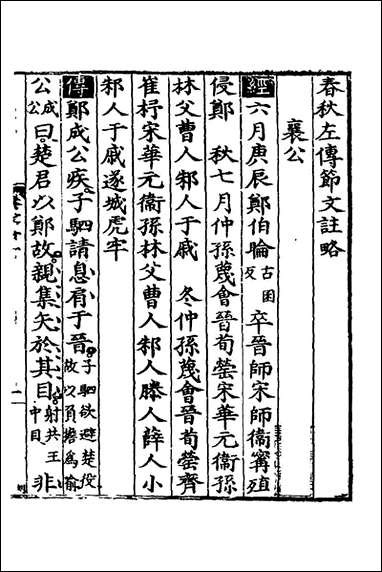 春秋左傳節文註略
襄公
經 六月庚辰鄭伯睔古困反卒晉師宋師衞寗殖
侵鄭 秋七月仲孫蔑會晉荀罃宋華元衞孫
林父曹人邾人于戚 冬仲孫蔑會晉荀罃齊
崔杼宋華元衞孫林父曹人邾人滕人薛人小
邾人于戚遂城虎牢
傳 鄭成公疾子駟請息肩于晉子駟欲避楚役故以負擔爲喻
公成公曰楚君以鄭故親集矢於其目射共王中目非